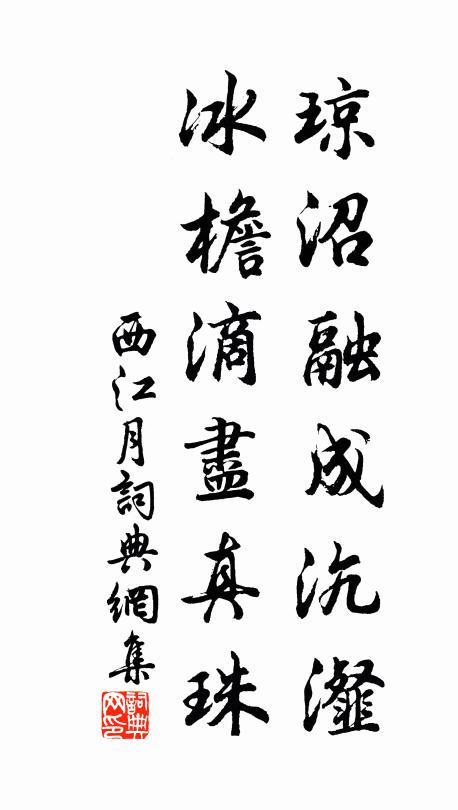 琼沼融成沆瀣
冰檐滴盡真珠
西江月詞典網集
詞典網印